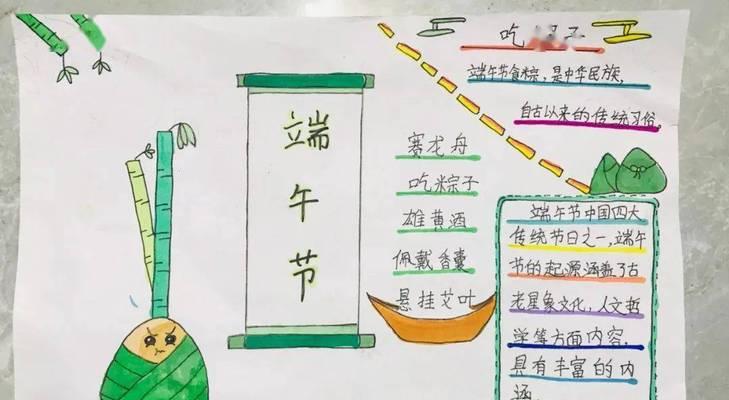 端午节
赛龙舟
吃粽子
雄黄酒
佩戴香囊
悬挂艾叶
吃
端午节食粽，是中华民族，
自古以来的传统习俗。
端午节中国四大
传统节日之一，端午
节的起源涵盖了古
老星象文化，人文哲
学等方面内容，
具有丰富的内
涵